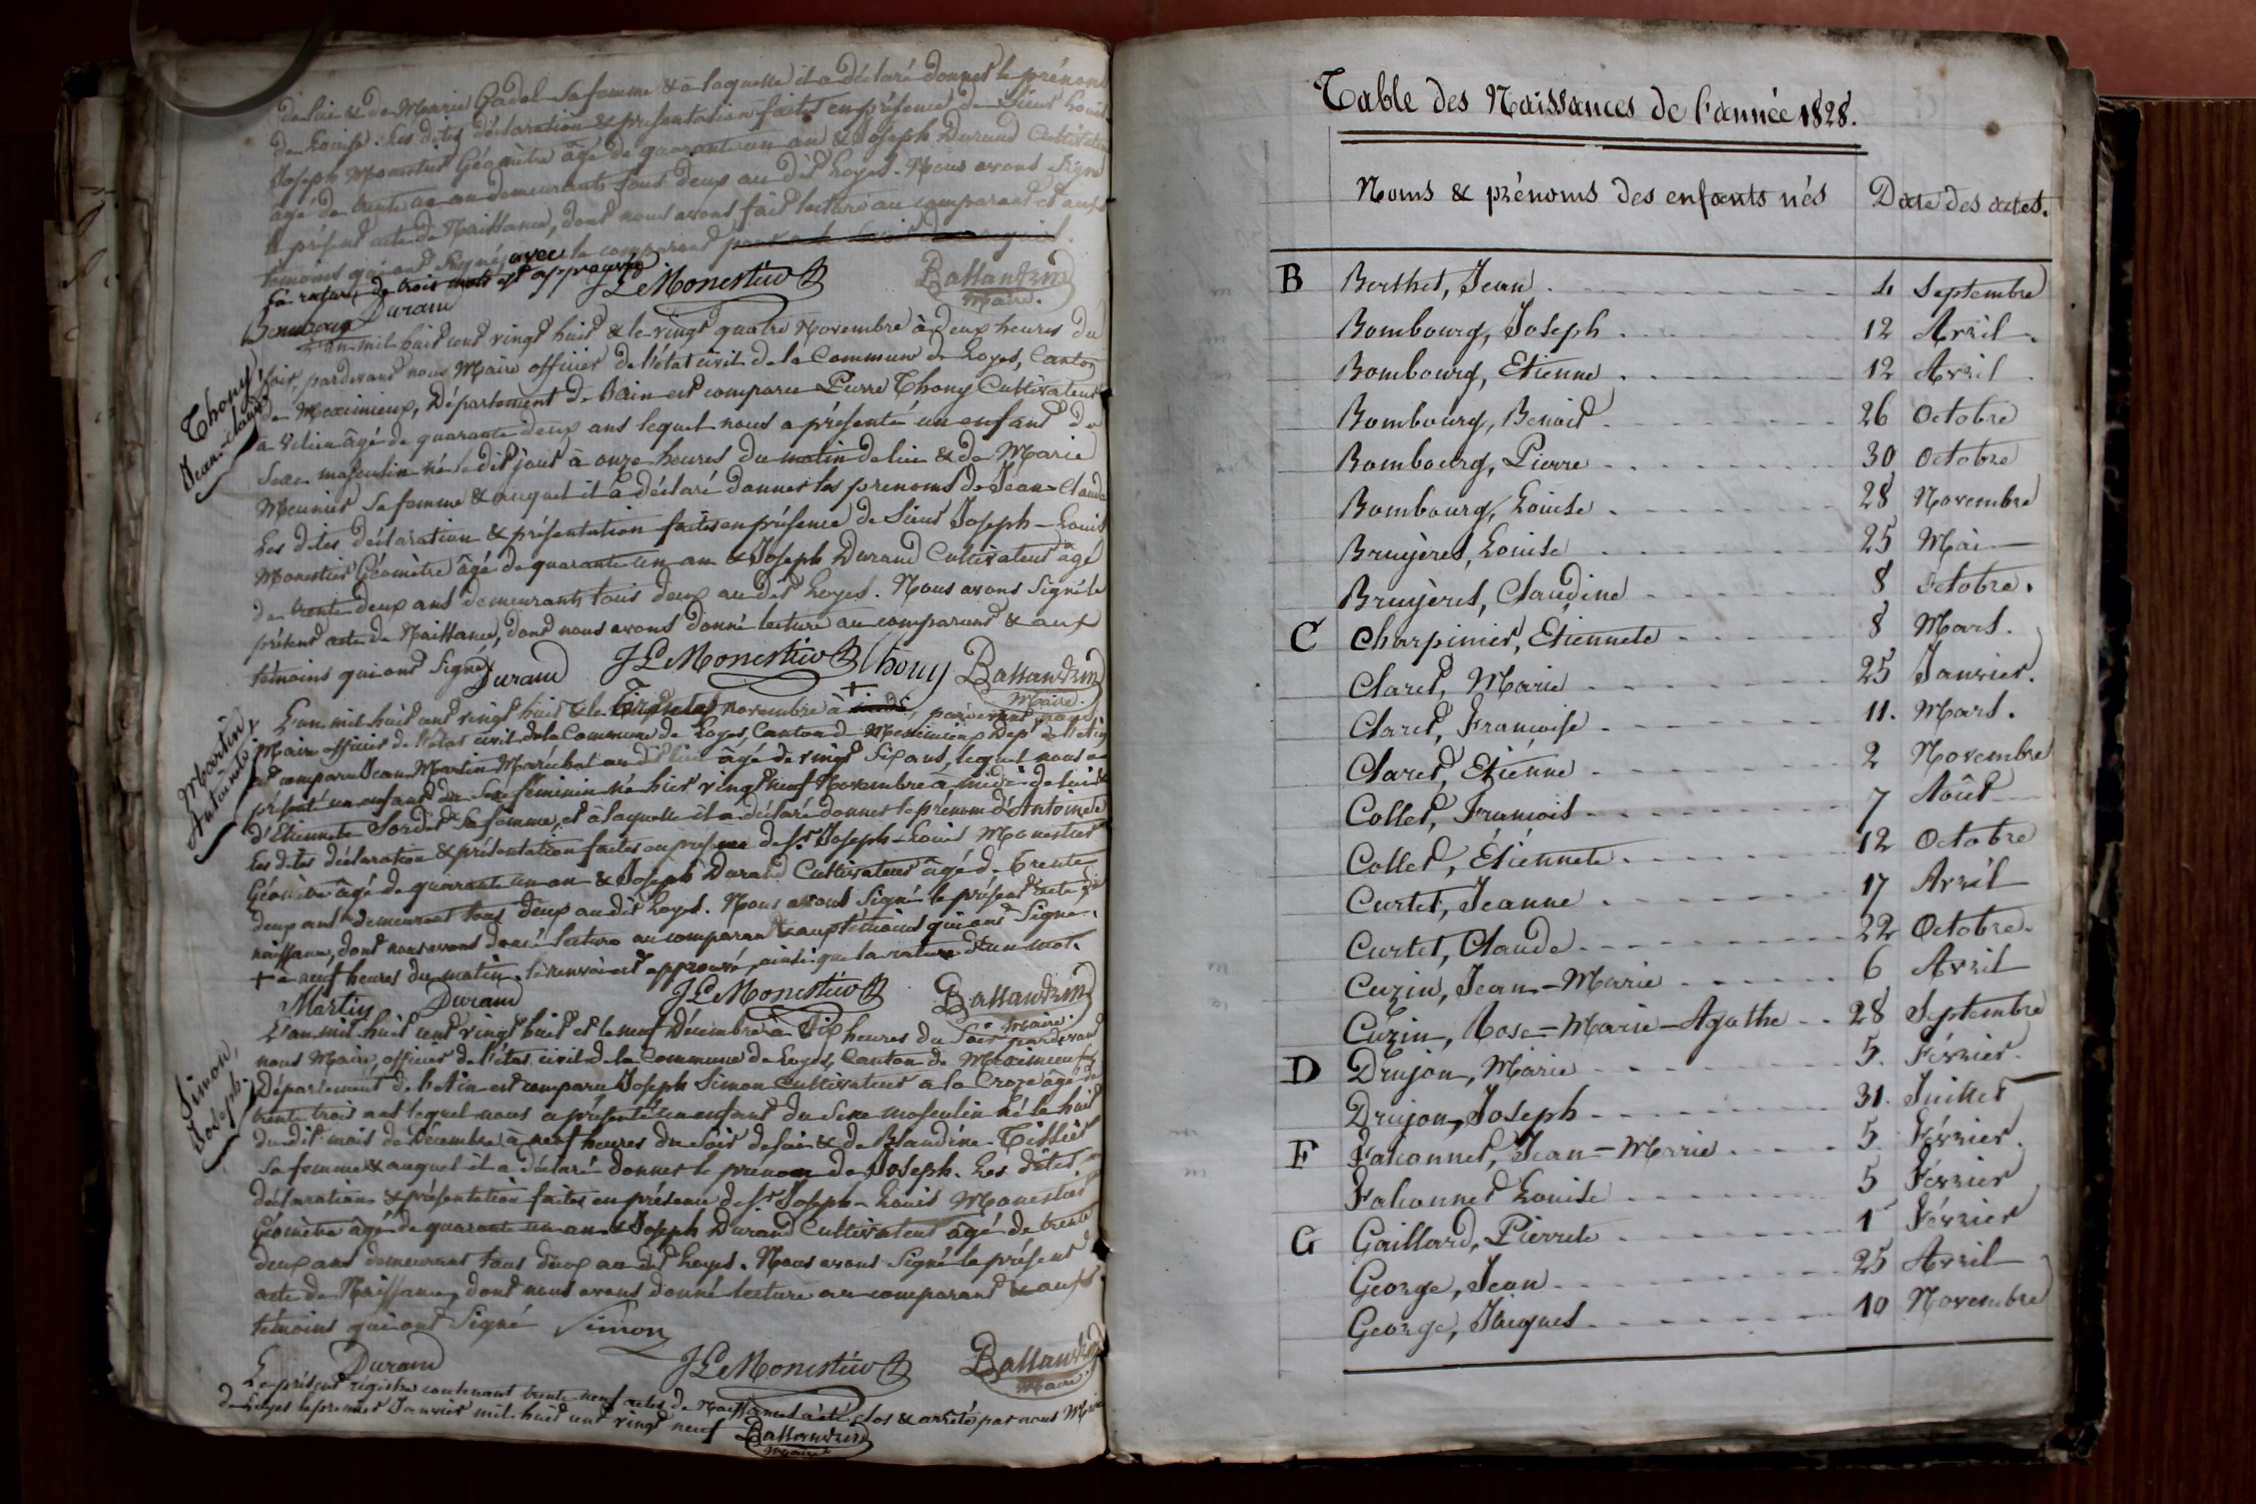 de lui & de Marie Gadol Sa femme & à laquelle il a déclaré donner le prénom
de Louise. Les dites déclaration & présentation faites en présence de Sieur Louis
Joseph Monestier Géomètre âgé de quarante un an & Joseph Durand Cultivateur
âgé de trente un an demeurants tous deux au dit Loyes. Nous avons Signé
le présent acte de Naissance, dont nous avons fait lecture au comparant et aux
témoins qui ont Signé avec le comparant
la rature de trois mots est approuvée
Bombourg Durand JLeMonestier Ballandrin
Maire.
Thony,
Jean-Claude
L'an mil huit cent vingt huit & le vingt quatre Novembre à Deux heures du
soir, pardevant nous Maire officier de l'état civil de la Commune de Loyes, Canton
de Meximieux, Département de l'ain est comparu Pierre Thony Cultivateur
à âgé de quarante deux ans lequel nous a présenté un enfant de
Sexe masculin né le dit jour à onze heures du matin de lui & de Marie
Meunier Sa femme & auquel il a déclaré donner les prenoms de Jean-Claude
Les dites déclaration & présentation faites en présence de Sieur Joseph-Louis
Monestier Géomètre âgé de quarante un an & Joseph Durand Cultivateur âgé
de trente deux ans demeurants tous deux au dit Loyes. Nous avons Signé le
présent acte de Naissance, dont nous avons donné lecture au comparant & aux
témoins qui ont Signé
Durand JLeMonestier Thony Ballandrin
Maire.
Martin,
Antoinete
L'an mil huit cent vingt huit & le novembre à + midi, pardevant nous
Maire officier de l'état civil de la Commune de Loyes, Canton de Meximieux Dept de l'Ain
est comparu Jean Martin Maréchal au dit lieu âgé de vingt six ans, lequel nous a
présenté un enfant du Sexe féminin né hier vingt neuf Novembre à midi de lui &
d'Etiennete Sordet Sa femme, et à laquelle il a déclaré donner le prénom d'Antoinete
Les dites déclaration & présentation faites en présence de Sr. Joseph-Louis Monestier
Géomètre âgé de quarante un an & Joseph Durand Cultivateur âgé de trente
deux ans demeurant tous deux au dit Loyes. Nous avons Signé le présent acte de
naissance, dont nous avons donné lecture au comparant & aux témoins qui ont Signé.
+ à neuf heures du matin. le renvoi est approuvé, ainsi que la rature d'un mot.
Martin Durand JLeMonestier Ballandrin
Maire.
Simon,
Joseph.
L'an mil huit cent vingt huit et le neuf Décembre à Six heures du Soir pardevant
nous Maire, officier de l'état civil de la Commune de Loyes, Canton de Meximieux
Département de l'Ain est comparu Joseph Simon Cultivateur à la Croze âgé de
trente trois ans lequel nous a présenté un enfant du Sexe masculin né le huit
du dit mois de Décembre à neuf heures du soir de lui & de Blandine Tissier
Sa femme & auquel il a déclaré donner le prenom de Joseph. Les dites
déclaration & présentation faites en présence de Sr. Joseph-Louis Monestier
Géomètre âgé de quarante un an & Joseph Durand Cultivateur âgé de trente
deux ans demeurant tous deux au dit Loyes. Nous avons Signé le présent
acte de Naissance, dont nous avons donné lecture au comparant & aux
témoins qui ont Signé Simon
Durand JLeMonestier Ballandrin
Maire.
Le présent régistre contenant trente neuf actes de Naissances a été clos & arrêté par nous Maire
de Loyes le premier Janvier mil huit cent vingt neuf Ballandrin
Maire
Table des Naissances de l'année 1828.
Noms & prénoms des enfants nés Date des actes.
B Berthet, Jean 4 Septembre
Bombourg, Joseph 12 Avril
Bombourg, Etienne 12 Avril
Bombourg, Benoit 26 Octobre
Bombourg, Pierre 30 Octobre
Bombourg, Louise 28 Novembre
Bruyères, Louise 25 Mai
Bruyères, Claudine 8 Octobre.
C Charpinier, Etiennete 8 Mars.
Claret, Marie 25 Janvier.
Claret, Françoise 11. Mars.
Claret, Etienne 2 Novembre
Collet, François 7 Août
Collet, Étiennete 12 Octobre
Curtet, Jeanne 17 Avril
Curtet, Claude 22 Octobre.
Cuzin, Jean-Marie 6 Avril
Cuzin, Rose-Marie-Agathe 28 Septembre
D Drujon, Marie 5. Février.
Drujon, Joseph 31. Juillet
F Falconnet, Jean-Marie 5 Février.
Falconnet Louise 5 Février
G Gaillard, Pierrete 1 Février
George, Jean 25 Avril
George, Jacques 10 Novembre